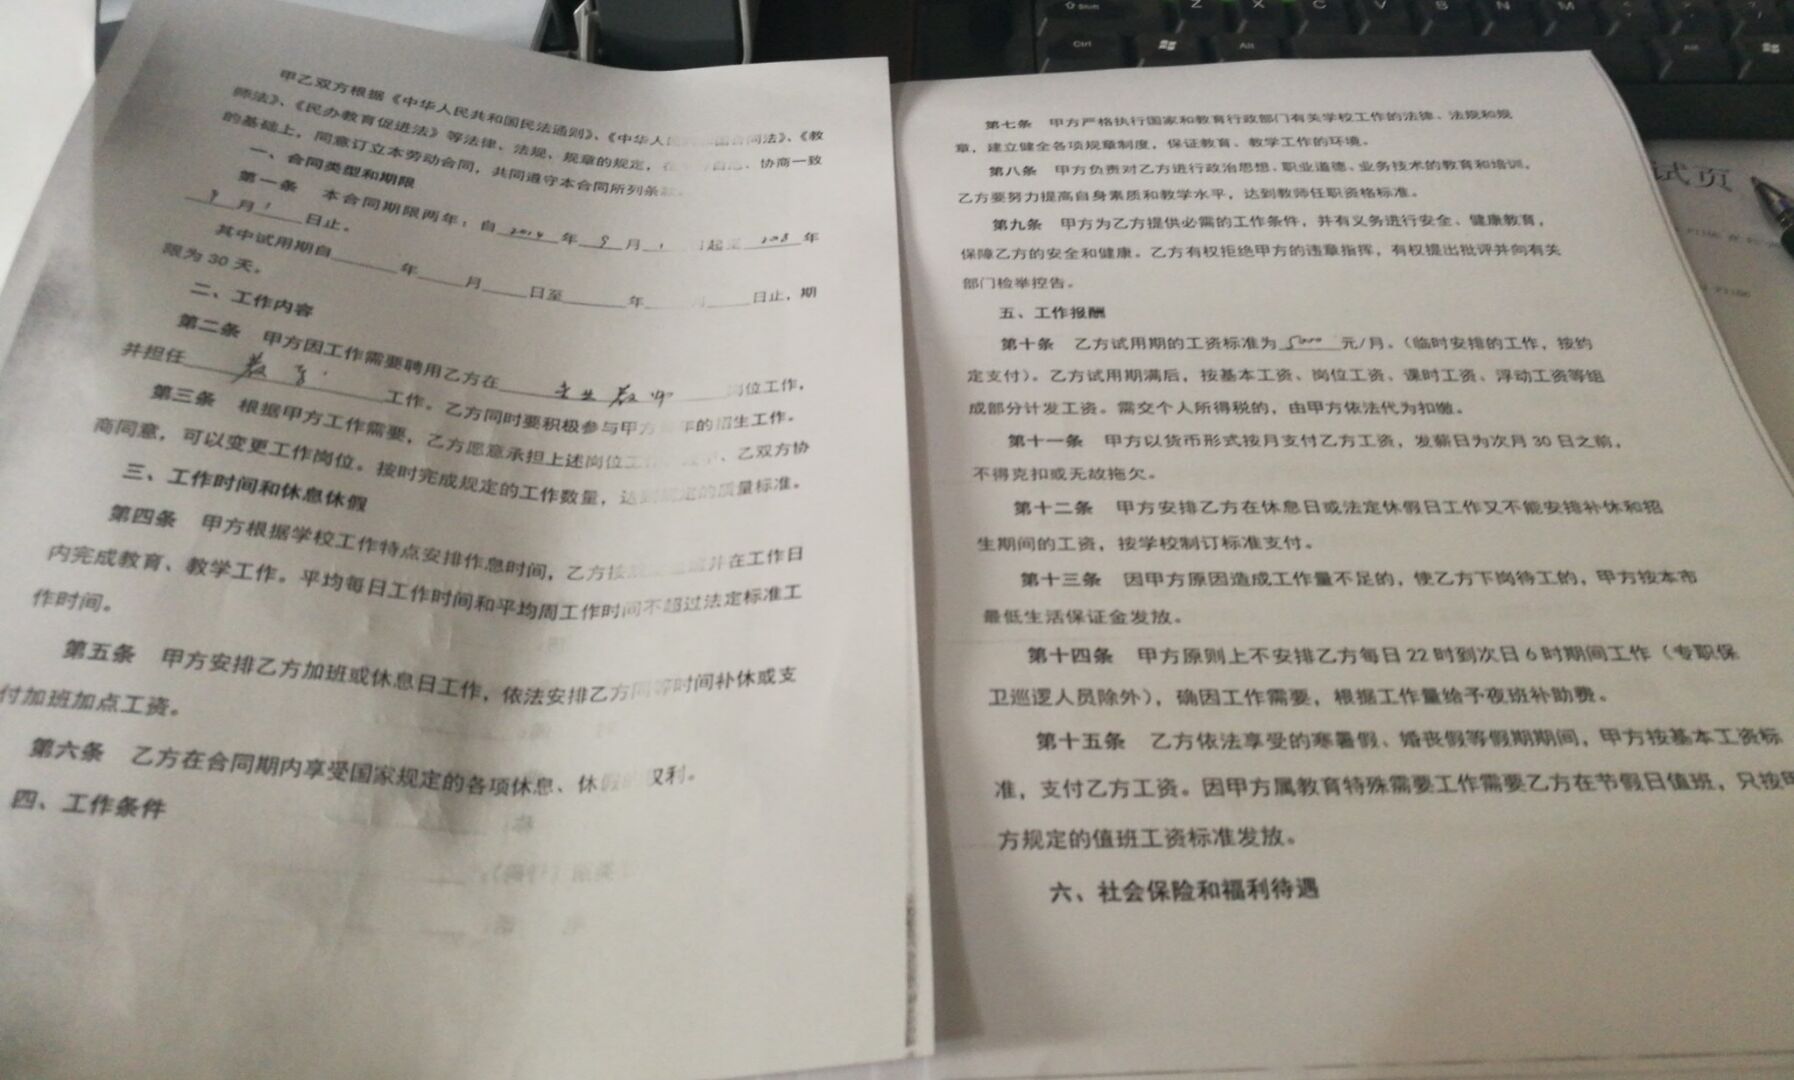 甲乙双方根据《中华人民共和国民法通则》、《中华人 合同法》、《教
师法》、《民办教育促进法》等法律、法规、规章的规定，在 、协商一致
的基础上，同意订立本劳动合同，共同遵守本合同所列条
一、合同类型和期限
第一条 本合同期限两年；自 年 月 起 年
月 日止。
其中试用期自 年 月 日至 年 日止，期
限为 30 天。
二、工作内容
第二条 甲方因工作需要聘用乙方在 教师 岗位工作，
并担任 工作。乙方同时要积极参与甲方 年的招生工作。
第三条 根据甲方工作需要，乙方愿意承担上述岗位 、乙双方协
商同意，可以变更工作岗位。按时完成规定的工作数量，达 质量标准。
三、工作时间和休息休假
第四条 甲方根据学校工作特点安排作息时间，乙方按 并在工作日
内完成教育、教学工作。平均每日工作时间和平均周工作时间不超过法定标准工
作时间。
第五条 甲方安排乙方加班或休息日工作，依法安排乙方同等时间补休或支
付加班加点工资。
第六条 乙方在合同期内享受国家规定的各项休息、休 权利。
四、工作条件
第七条 甲方严格执行国家和教育行政部门有关学校工作的法律、法规和规
章，建立健全各项规章制度，保证教育、教学工作的环境。
第八条 甲方负责对乙方进行政治思想、职业道德、业务技术的教育和培训，
乙方要努力提高自身素质和教学水平，达到教师任职资格标准。
第九条 甲方为乙方提供必需的工作条件，并有义务进行安全、健康教育，
保障乙方的安全和健康。乙方有权拒绝甲方的违章指挥，有权提出批评并向有关
部门检举控告。
五、工作报酬
第十条 乙方试用期的工资标准为 5000 元/月。（临时安排的工作，按约
定支付）。乙方试用期满后，按基本工资、岗位工资、课时工资、浮动工资等组
成部分计发工资。需交个人所得税的，由甲方依法代为扣缴。
第十一条 甲方以货币形式按月支付乙方工资，发薪日为次月 30 日之前，
不得克扣或无故拖欠。
第十二条 甲方安排乙方在休息日或法定休假日工作又不能安排补休和招
生期间的工资，按学校制订标准支付。
第十三条 因甲方原因造成工作量不足的，使乙方下岗待工的，甲方按本市
最低生活保证金发放。
第十四条 甲方原则上不安排乙方每日 22 时到次日 6 时期间工作（专职保
卫巡逻人员除外），确因工作需要，根据工作量给予夜班补助费。
第十五条 乙方依法享受的寒暑假、婚丧假等假期期间，甲方按基本工资标
准，支付乙方工资。因甲方属教育特殊需要工作需要乙方在节假日值班，只按甲
方规定的值班工资标准发放。
六、社会保险和福利待遇
试页
Shift Z X C V B N M
Ctrl Alt Alt